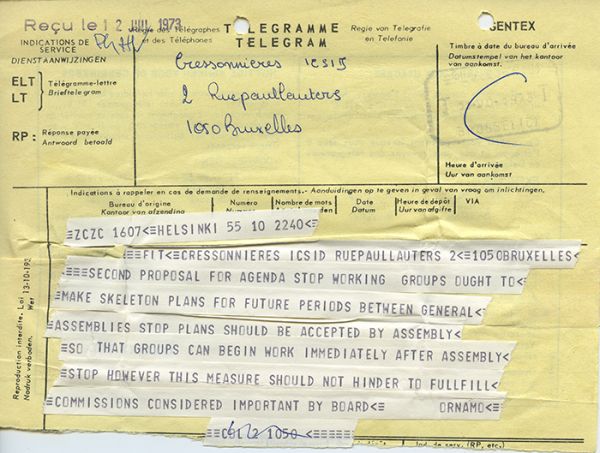 Reçu le 12 JUIL 1973
Régie des Télégraphes
et des Téléphones
TELEGRAMME
TELEGRAM
Regie van Telegrafie
en Telefonie
GENTEX
INDICATIONS DE
SERVICE
DIENSTAANWIJZINGEN
ELT
LT
Télégramme-lettre
Brieftelegram
RP:
Réponse payée
Antwoord betaald
Cressonnières ICSID
2 Ruepaullauters
1050 Bruxelles
Timbre à date du bureau d'arrivée
Datumstempel van het kantoor
van aankomst.
Heure d'arrivée
Uur van aankomst.
Indications à rappeler en cas de demande de renseignements.- Aanduidingen op te geven in geval van vraag om inlichtingen,
Bureau d'origine
Kantoor van afzending
Numéro
Nombre de mots
Date
Datum
Heure de dépôt
Uur van afgifte
VIA
=ZCZC 1607<=HELSINKI 55 10 2240<=
=FIT<=CRESSONNIERES ICSID RUEPAULLAUTERS 2<=1050BRUXELLES<
≡≡≡SECOND PROPOSAL FOR AGENDA STOP WORKING GROUPS OUGHT TO<
MAKE SKELETON PLANS FOR FUTURE PERIODS BETWEEN GENERAL<
ASSEMBLIES STOP PLANS SHOULD BE ACCEPTED BY ASSEMBLY<
=SO THAT GROUPS CAN BEGIN WORK IMMEDIATELY AFTER ASSEMBLY<
=STOP HOWEVER THIS MEASURE SHOULD NOT HINDER TO FULLFILL<
=COMMISSIONS CONSIDERED IMPORTANT BY BOARD<≡ ORNAMO<
≡≡≡COL 2 1050<≡
Reproduction interdite. Loi 13-10-193
Nadruk verboden. Wet
Ind. de serv. (RP, etc.)